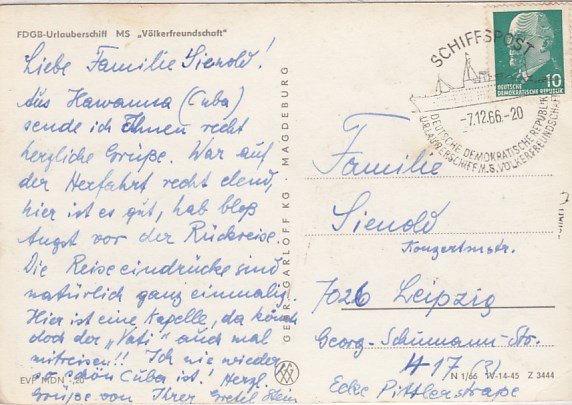 FDGB-Urlauberschiff MS „Völkerfreundschaft"
Liebe Familie Sienold!
Aus Hawanna (Cuba)
sende ich Ihnen recht
herzliche Grüße. War auf
der Herfahrt recht elend,
hier ist es gut, hab bloß
Angst vor der Rückreise.
Die Reiseeindrücke sind
natürlich ganz einmalig.
Hier ist eine Kapelle, da könnte
doch der „Vati" auch mal
mitreisen!! Ich nie wieder
so schön Cuba ist! Herzl.
Grüße von Ihrer Gretel
EVP MDN -,20
GEBR. GARLOFF KG · MAGDEBURG
SCHIFFSPOST
-7.12.66.-20
DEUTSCHE DEMOKRATISCHE REPUBLIK
URLAUBERSCHIFF M.S. VÖLKERFREUNDSCHAFT
DEUTSCHE
DEMOKRATISCHE REPUBLIK
10
Familie
Sienold
Konzertmstr.
7026 Leipzig
Georg-Schumann-Str.
417 (?)
N 1/66 IV-14-45 Z 3444
Ecke Pittlerstraße